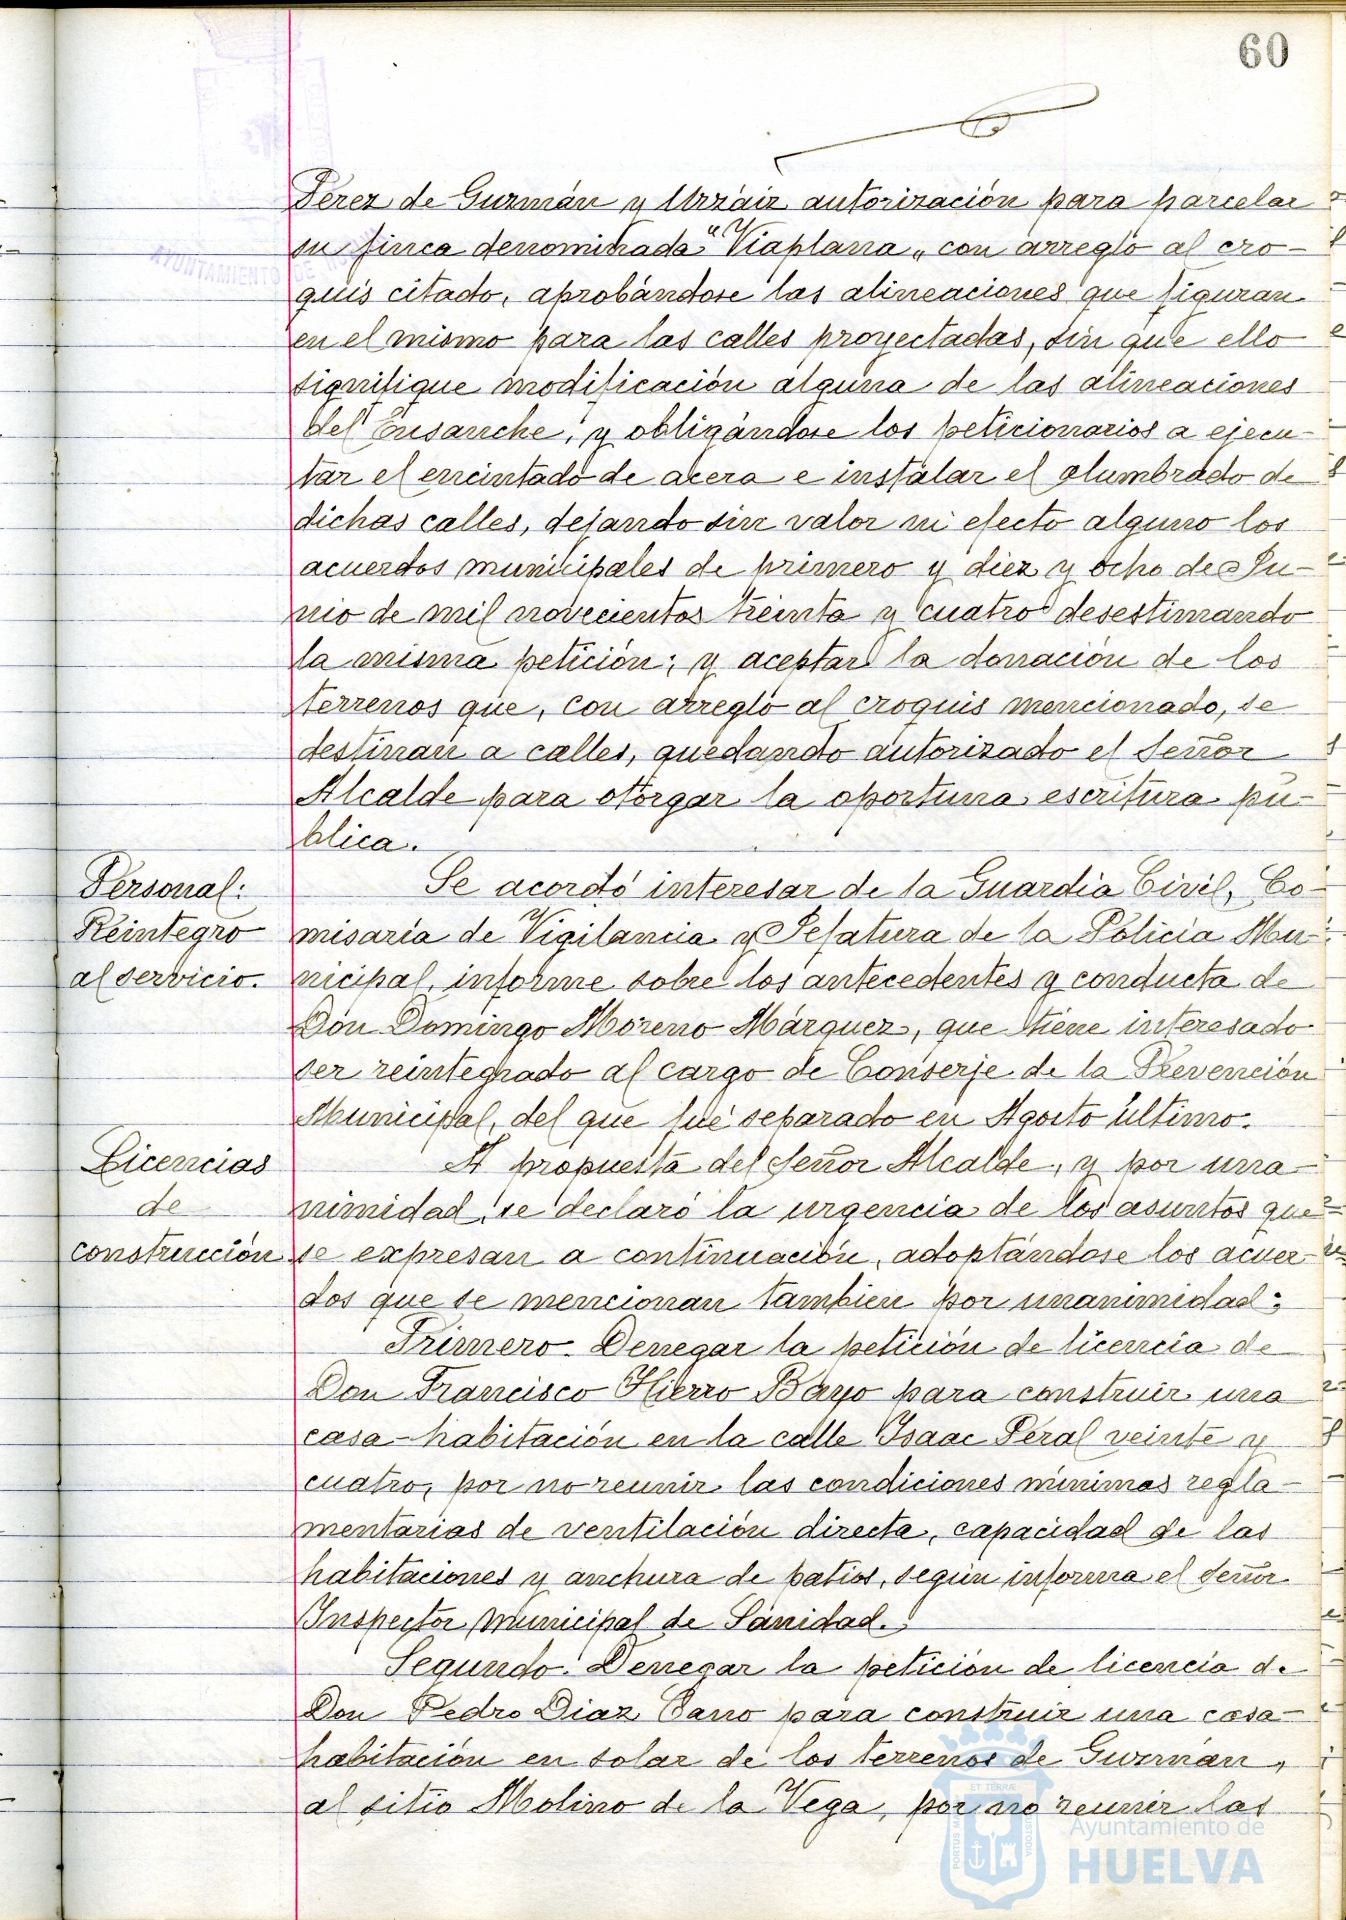 60
Pérez de Guzmán y Urzáiz autorización para parcelar
su finca denominada "Viaplana" con arreglo al cro-
quis citado, aprobándose las alineaciones que figuran
en el mismo para las calles proyectadas, sin que ello
signifique modificación alguna de las alineaciones
del Ensanche, y obligándose los peticionarios a ejecu-
tar el encintado de acera e instalar el alumbrado de
dichas calles, dejando sin valor ni efecto alguno los
acuerdos municipales de primero y diez y ocho de Ju-
nio de mil novecientos treinta y cuatro desestimando
la misma petición; y aceptar la donación de los
terrenos que, con arreglo al croquis mencionado, se
destinan a calles, quedando autorizado el Señor
Alcalde para otorgar la oportuna escritura pú-
blica.
Personal:
Reintegro
al servicio.
Se acordó interesar de la Guardia Civil, Co-
misaría de Vigilancia y Jefatura de la Policía Mu-
nicipal, informe sobre los antecedentes y conducta de
Don Domingo Moreno Márquez, que tiene interesado
ser reintegrado al cargo de Conserje de la Prevención
Municipal, del que fué separado en Agosto último.
Licencias
de
construcción
A propuesta del Señor Alcalde, y por una-
nimidad, se declaró la urgencia de los asuntos que
se expresan a continuación, adoptándose los acuer-
dos que se mencionan tambien por unanimidad:
Primero. Denegar la petición de licencia de
Don Francisco Hierro Bayo para construir una
casa-habitación en la calle Isaac Peral veinte y
cuatro, por no reunir las condiciones mínimas regla-
mentarias de ventilación directa, capacidad de las
habitaciones y anchura de patios, según informa el Señor
Inspector Municipal de Sanidad.
Segundo. Denegar la petición de licencia de
Don Pedro Diaz Cano para construir una casa-
habitación en solar de los terrenos de Guzmán,
al sitio Molino de la Vega, por no reunir las
AYUNTAMIENTO DE
Ayuntamiento de
HUELVA